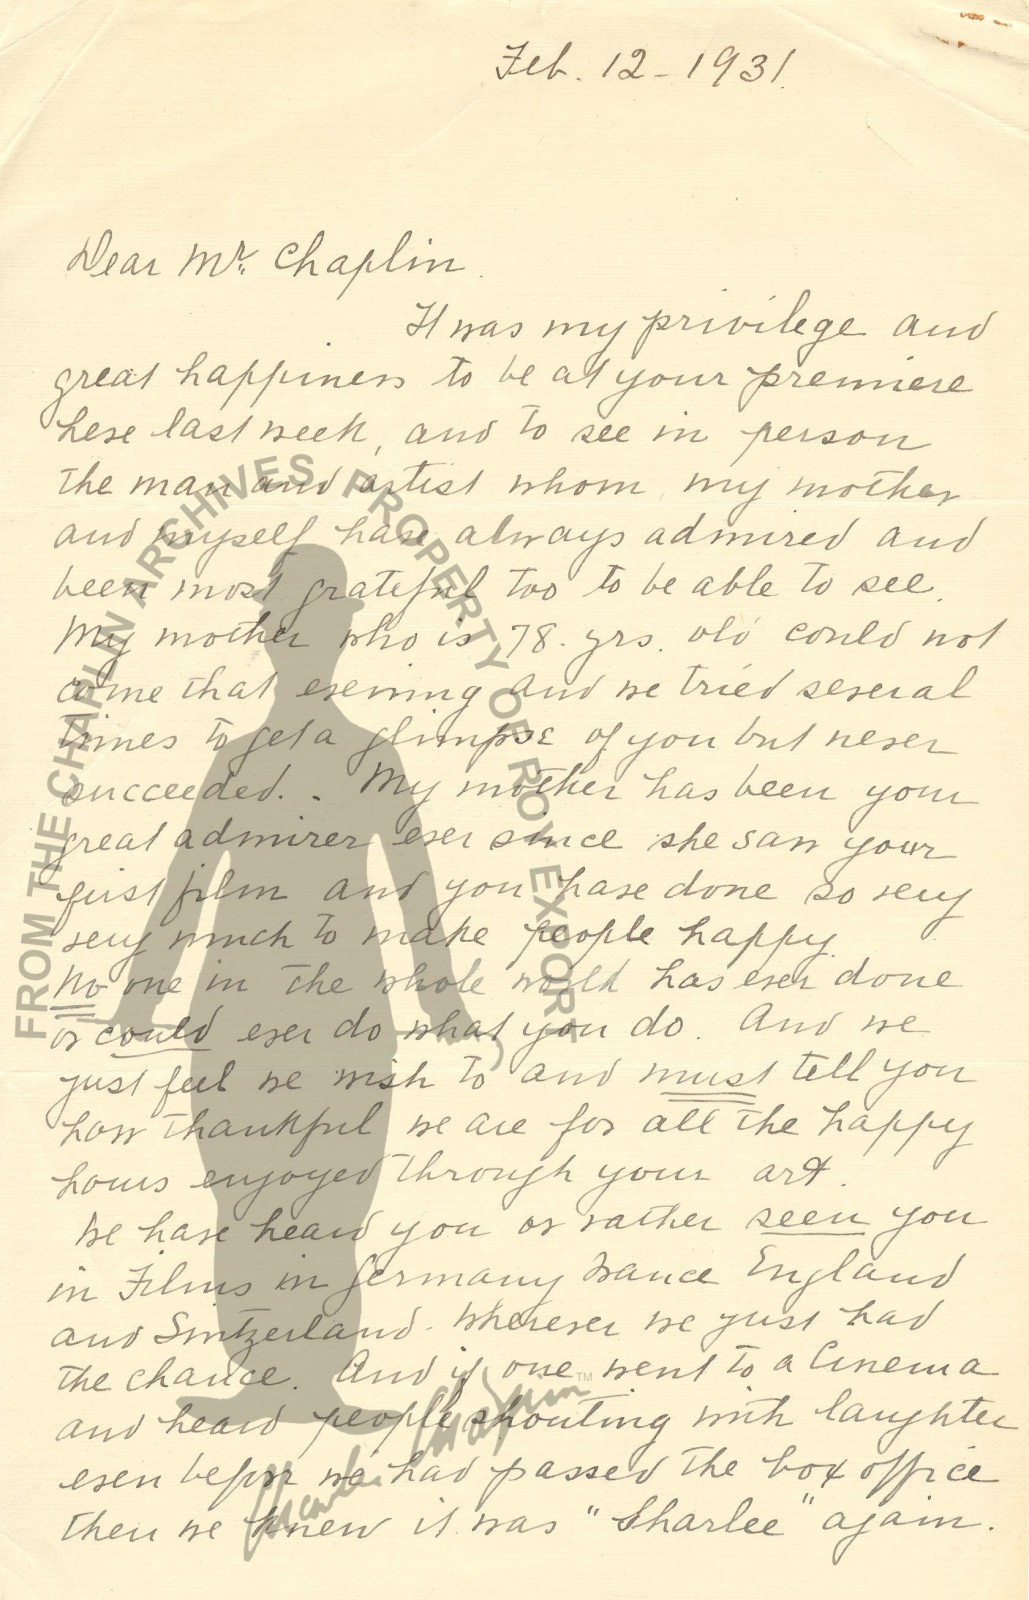 Feb. 12 - 1931.
Dear Mr. Chaplin.
It was my privilege and
great happiness to be at your premiere
here last week, and to see in person
the man and artist whom my mother
and myself have always admired and
been most grateful too to be able to see.
My mother who is 78. yrs. old could not
come that evening and we tried several
times to get a glimpse of you but never
succeeded. . My mother has been your
great admirer ever since she saw your
first film and you have done so very
very much to make people happy.
No one in the whole world has ever done
or could ever do what you do. And we
just feel we wish to and must tell you
how thankful we are for all the happy
hours enjoyed through your art.
We have heard you or rather seen you
in Films in Germany France England
and Switzerland. Wherever we just had
the chance. And if one went to a Cinema
and heard people shouting with laughter
even before we had passed the box office
then we knew it was "Sharlee" again.
FROM THE CHAPLIN ARCHIVES PROPERTY OF ROY EXPORT
TM
Charlie Chaplin